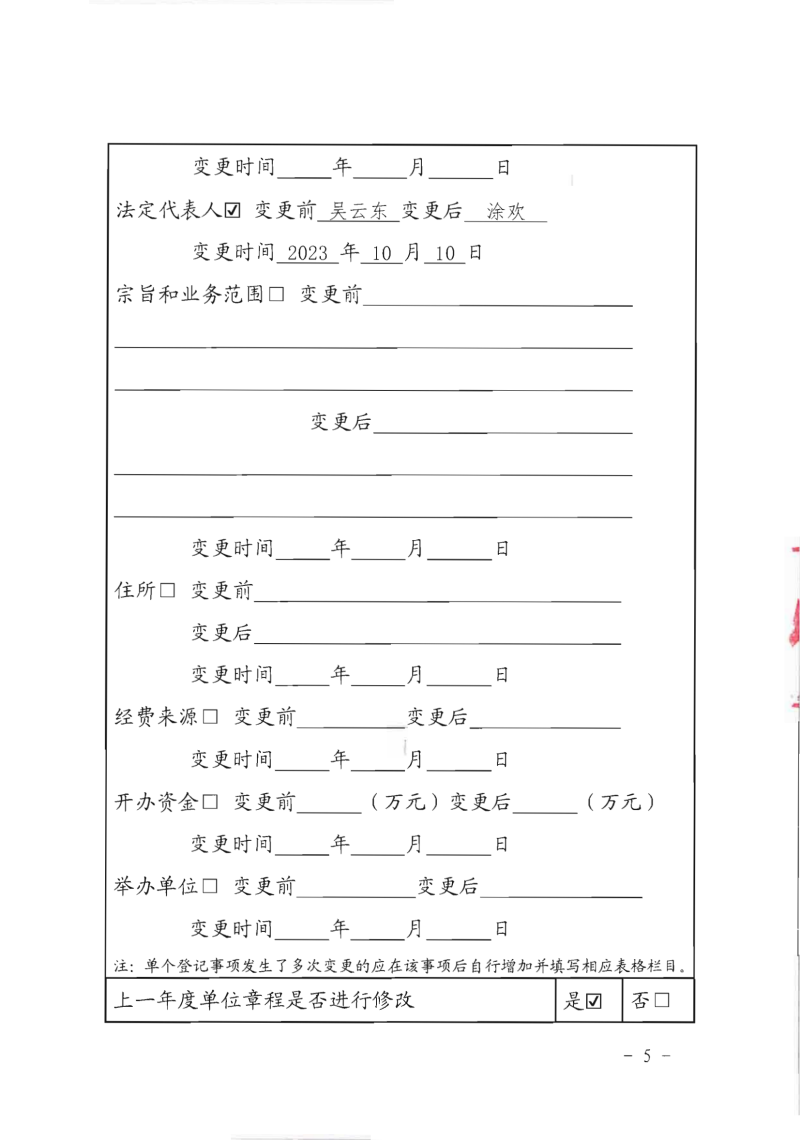 变更时间_____年_____月_____日
法定代表人☑ 变更前 吴云东 变更后 涂欢
变更时间 2023 年 10 月 10 日
宗旨和业务范围□ 变更前__________
变更后__________
变更时间_____年_____月_____日
住所□ 变更前__________
变更后__________
变更时间_____年_____月_____日
经费来源□ 变更前__________变更后__________
变更时间_____年_____月_____日
开办资金□ 变更前_____（万元）变更后_____（万元）
变更时间_____年_____月_____日
举办单位□ 变更前__________变更后__________
变更时间_____年_____月_____日
注：单个登记事项发生了多次变更的应在该事项后自行增加并填写相应表格栏目。
上一年度单位章程是否进行修改 是☑ 否□
- 5 -